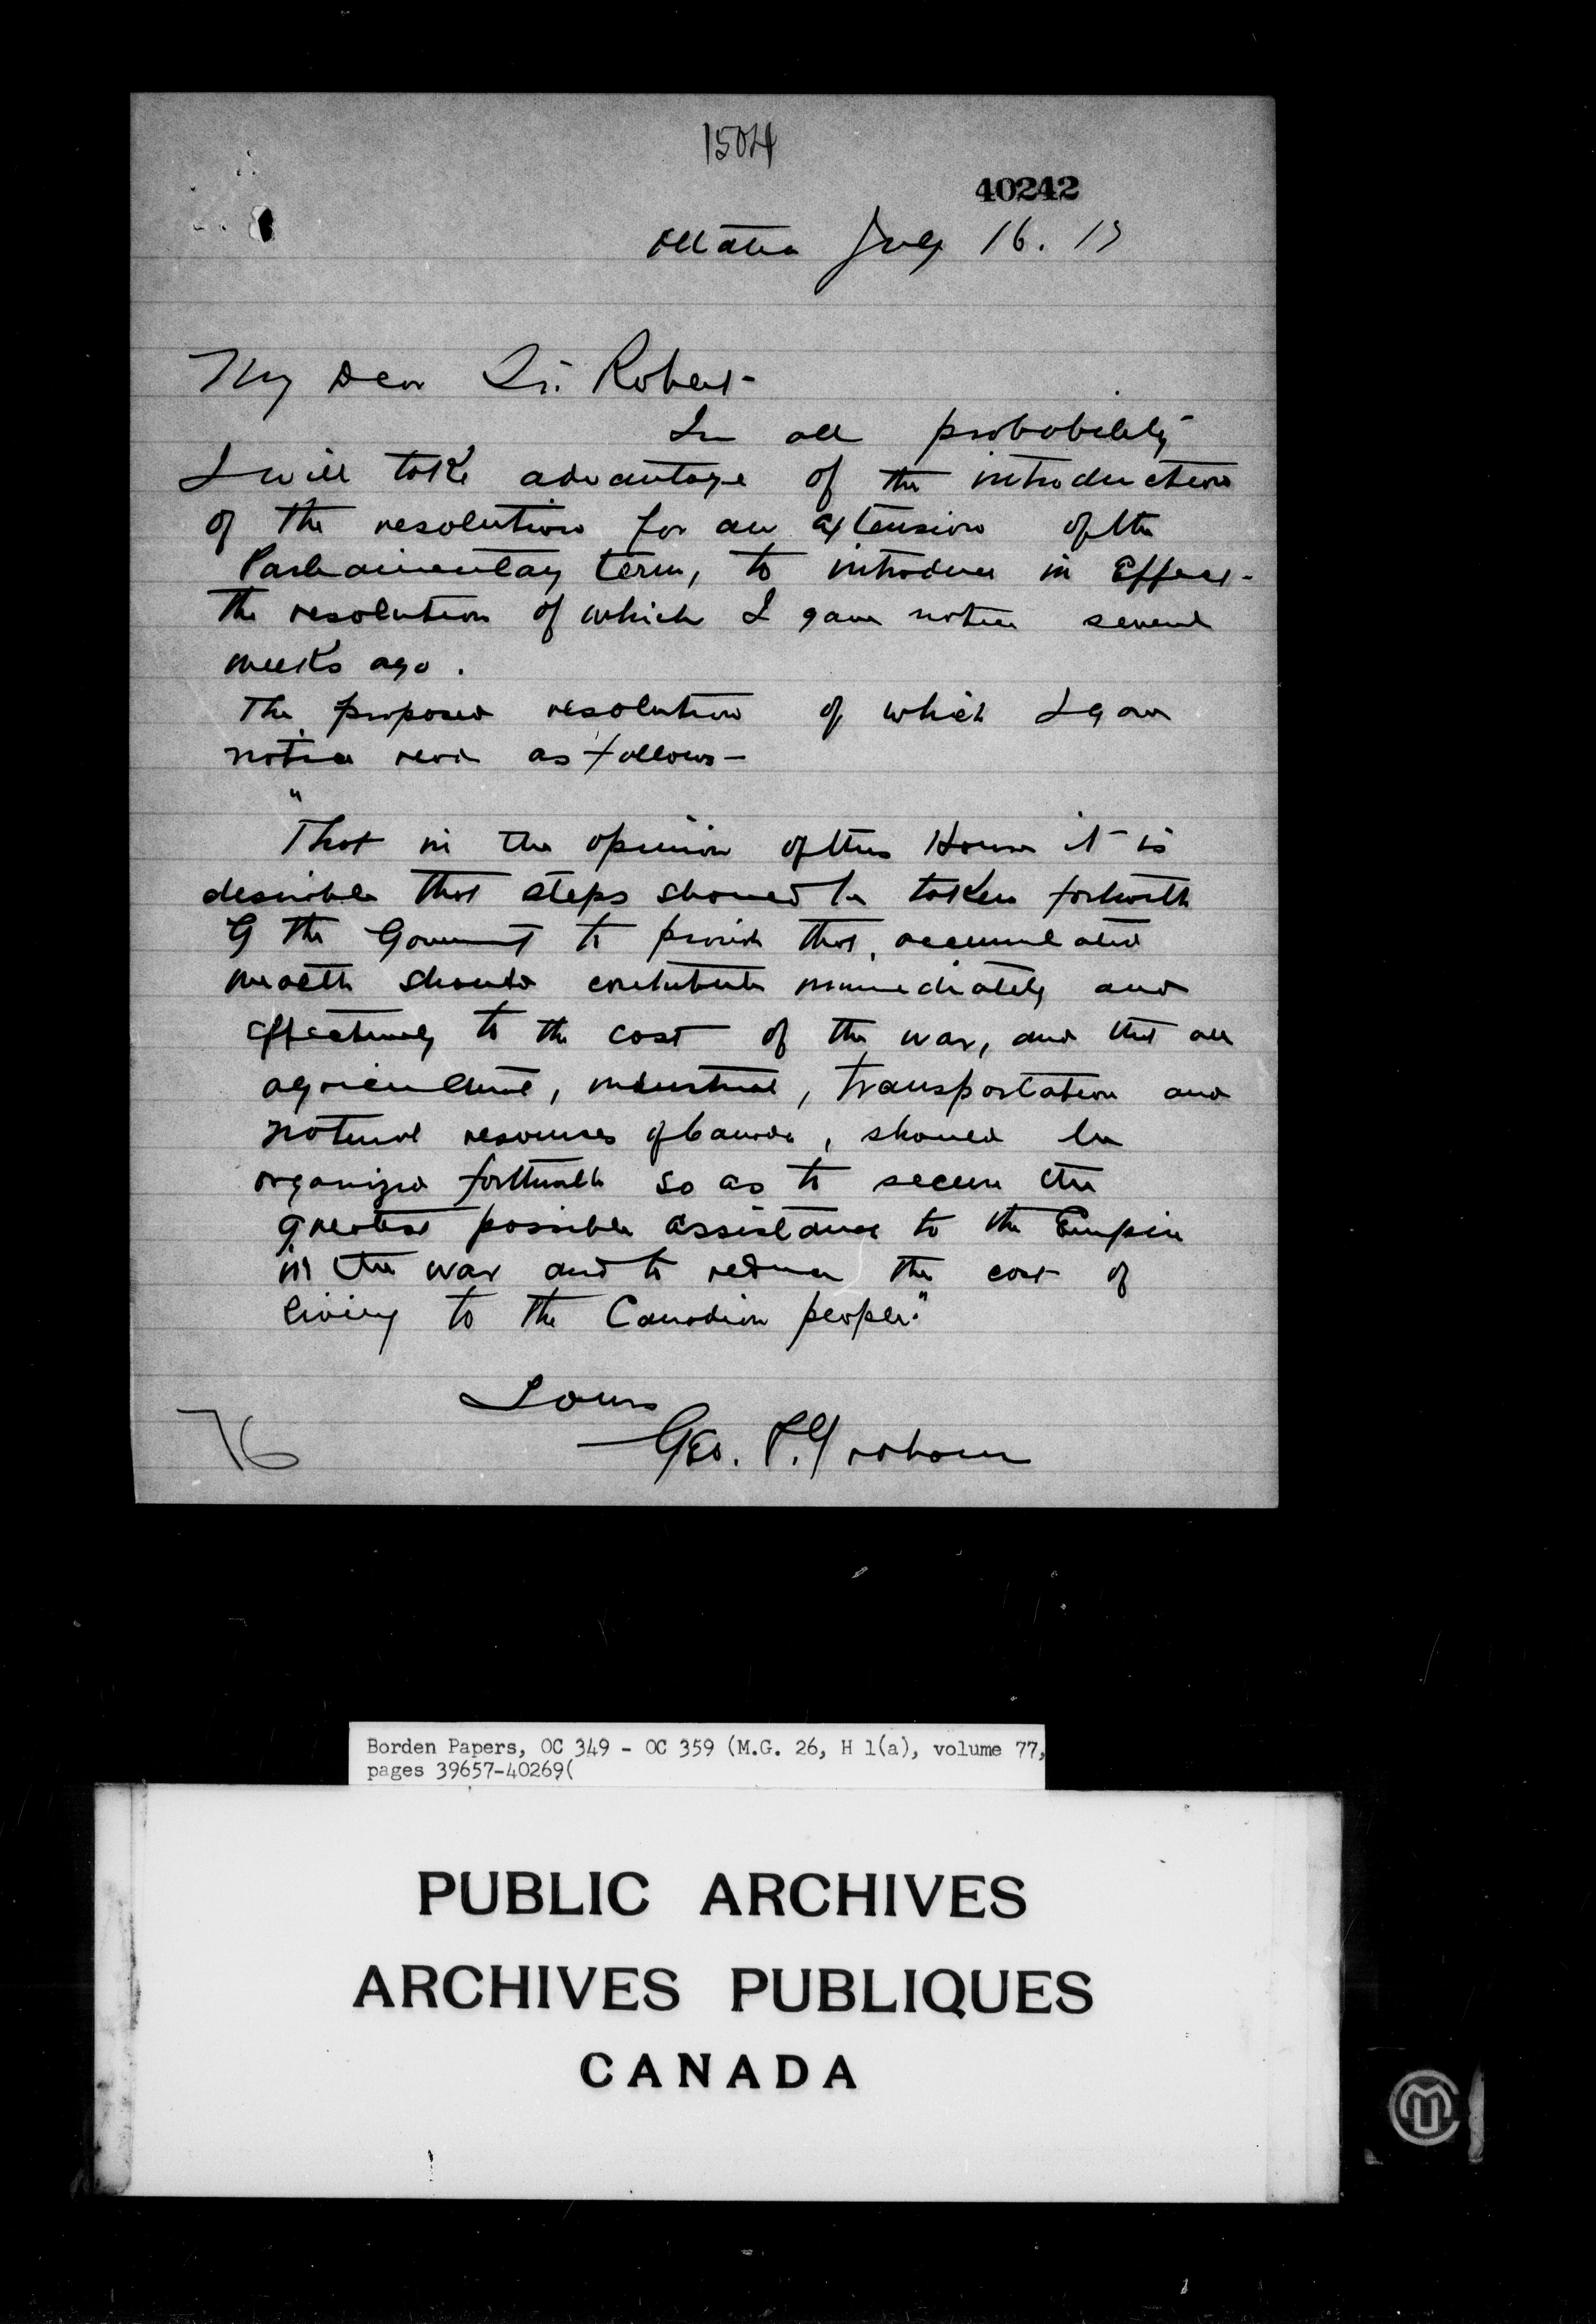 1504
40242
Ottawa July 16. 17
My Dear Sir Robert-
In all probability
I will take advantage of the introduction
of the resolution for an extension of the
Parliamentary term, to introduce in Effect-
the resolution of which I gave notice several
weeks ago.
The proposed resolution of which I gave
notice read as follows-
"That in the opinion of this House it is
desirable that steps should be taken forthwith
by the Government to provide that accumulated
wealth should contribute immediately and
effectively to the cost of the war, and that all
agricultural, industrial, transportation and
natural resources of Canada, should be
organized forthwith so as to secure the
greatest possible assistance to the Empire
in the war and to reduce the cost of
living to the Canadian people."
Yours
Geo. P. Graham
76
Borden Papers, OC 349 - OC 359 (M.G. 26, H 1(a), volume 77,
pages 39657-40269(
PUBLIC ARCHIVES
ARCHIVES PUBLIQUES
CANADA